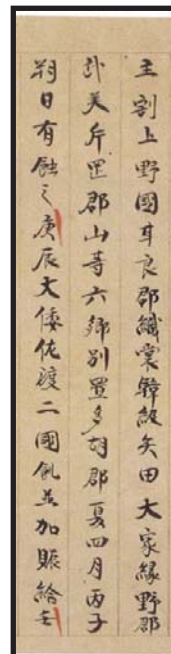 主割上野國甘良郡織裳韓級矢田大家緣野郡
武美斤罡郡山等六鄉別置多胡郡夏四月丙子
朔日有蝕之庚辰大倭佐渡二國飢並加賑給壬